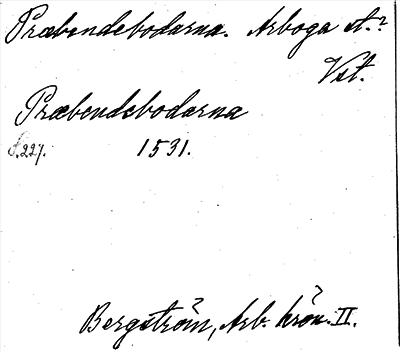 Præbendebodarna. Arboga st.?
Vst.
Præbendebodarna
S. 227. 1531.
Bergström, Arb. krön. II.